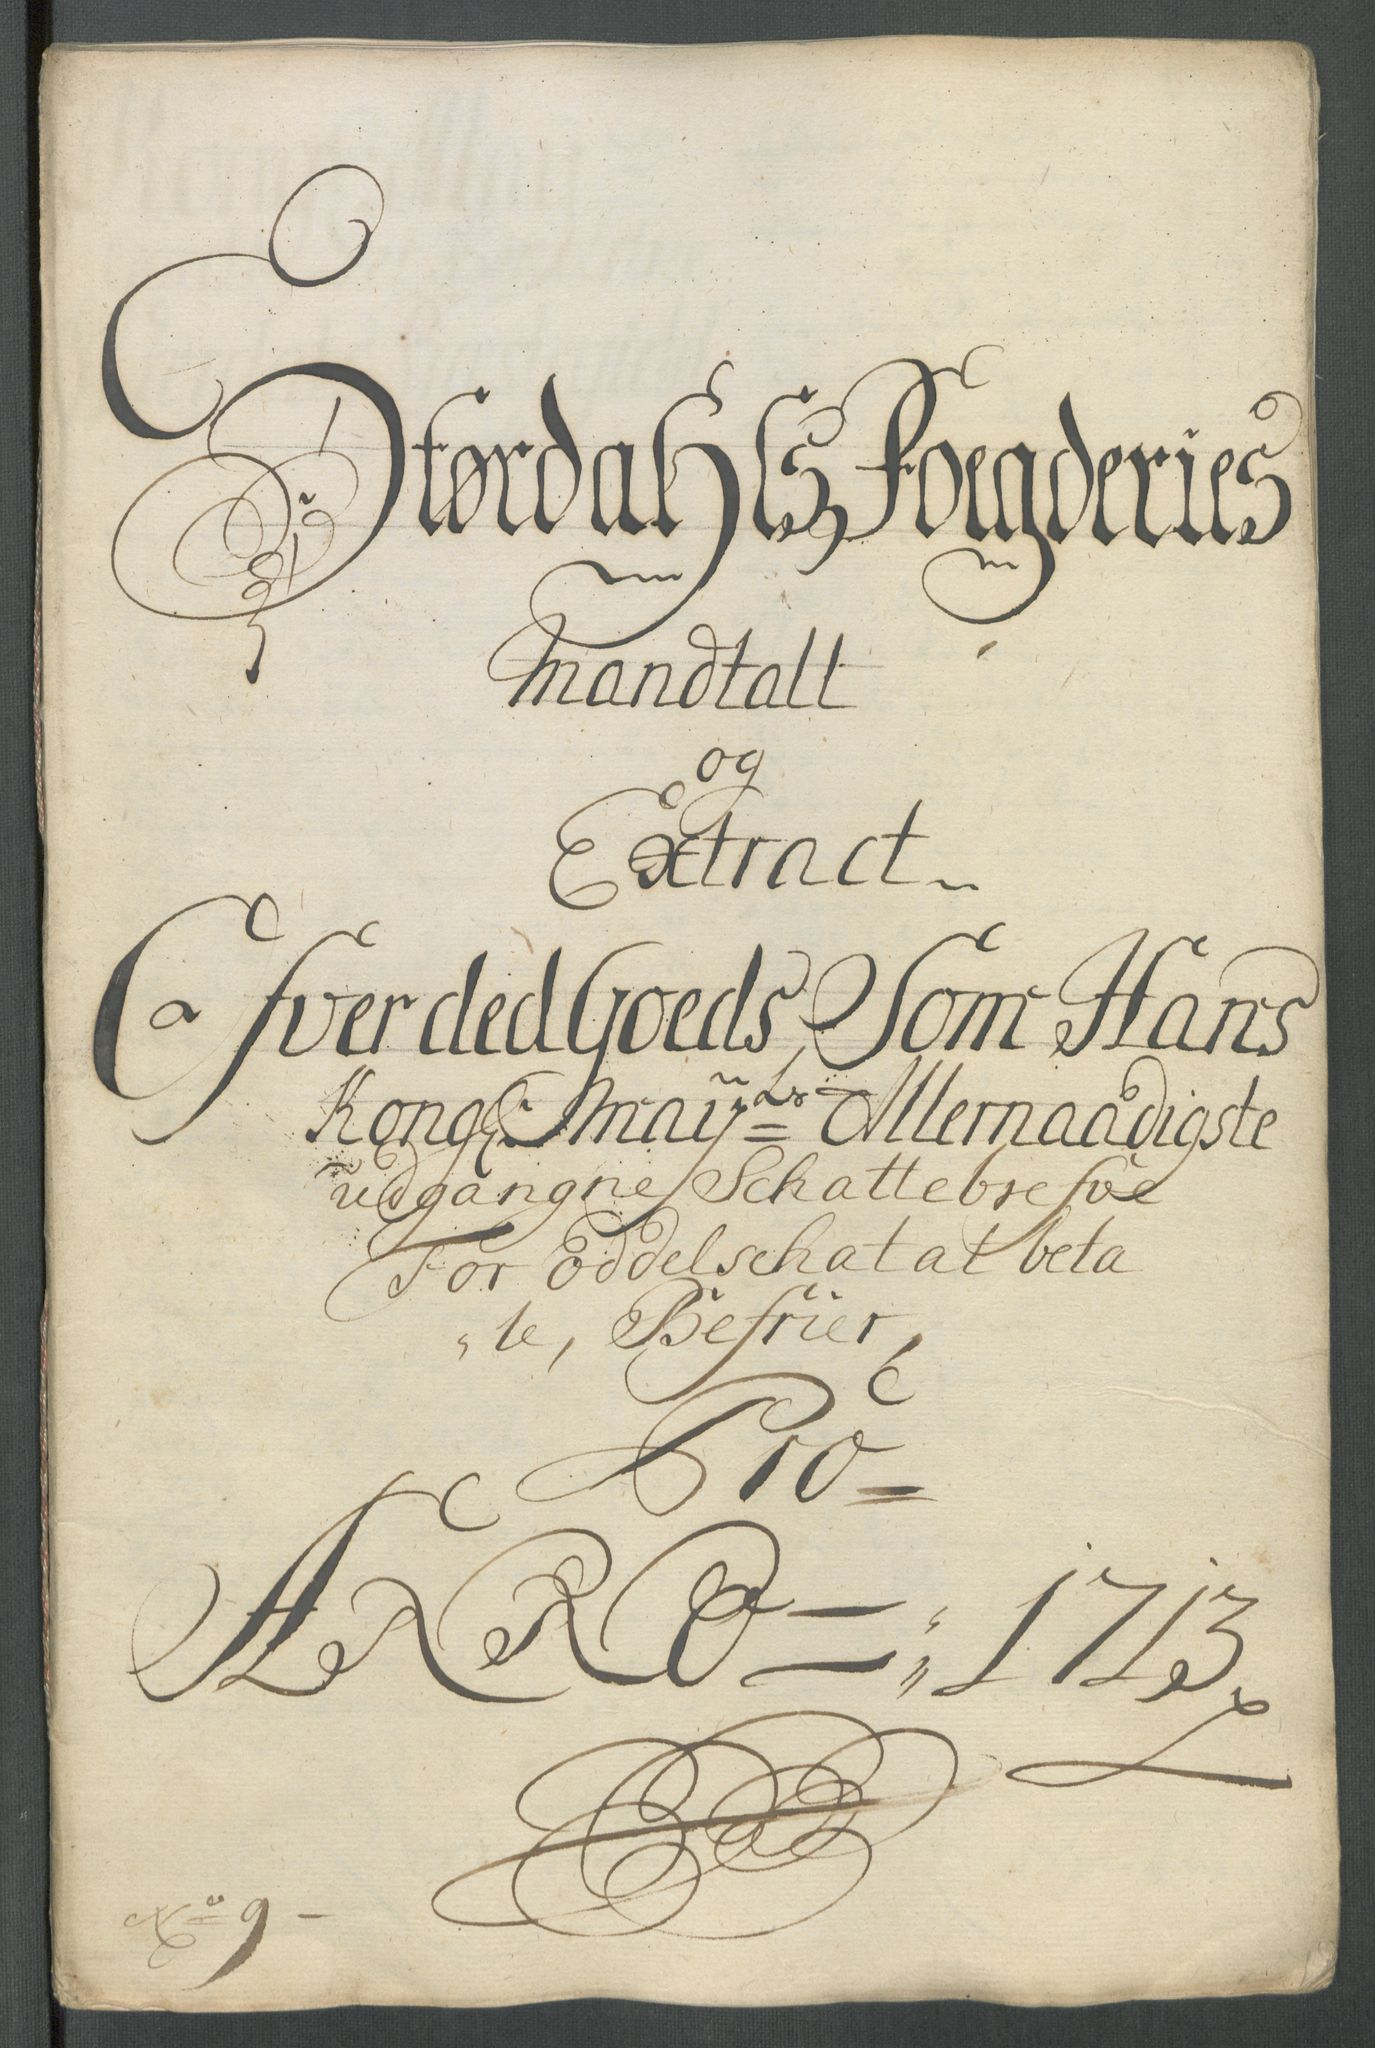 Størdahls Foegderies
Mandtall
og
Extract
Ofver ded Goeds, Som Hans
Kongl. Mayts Allernaadigste
udgangne Schattebrefve
For Oddelschat at beta
"le, Befrier,
Pro
ANNO = " 1713
No 9 -